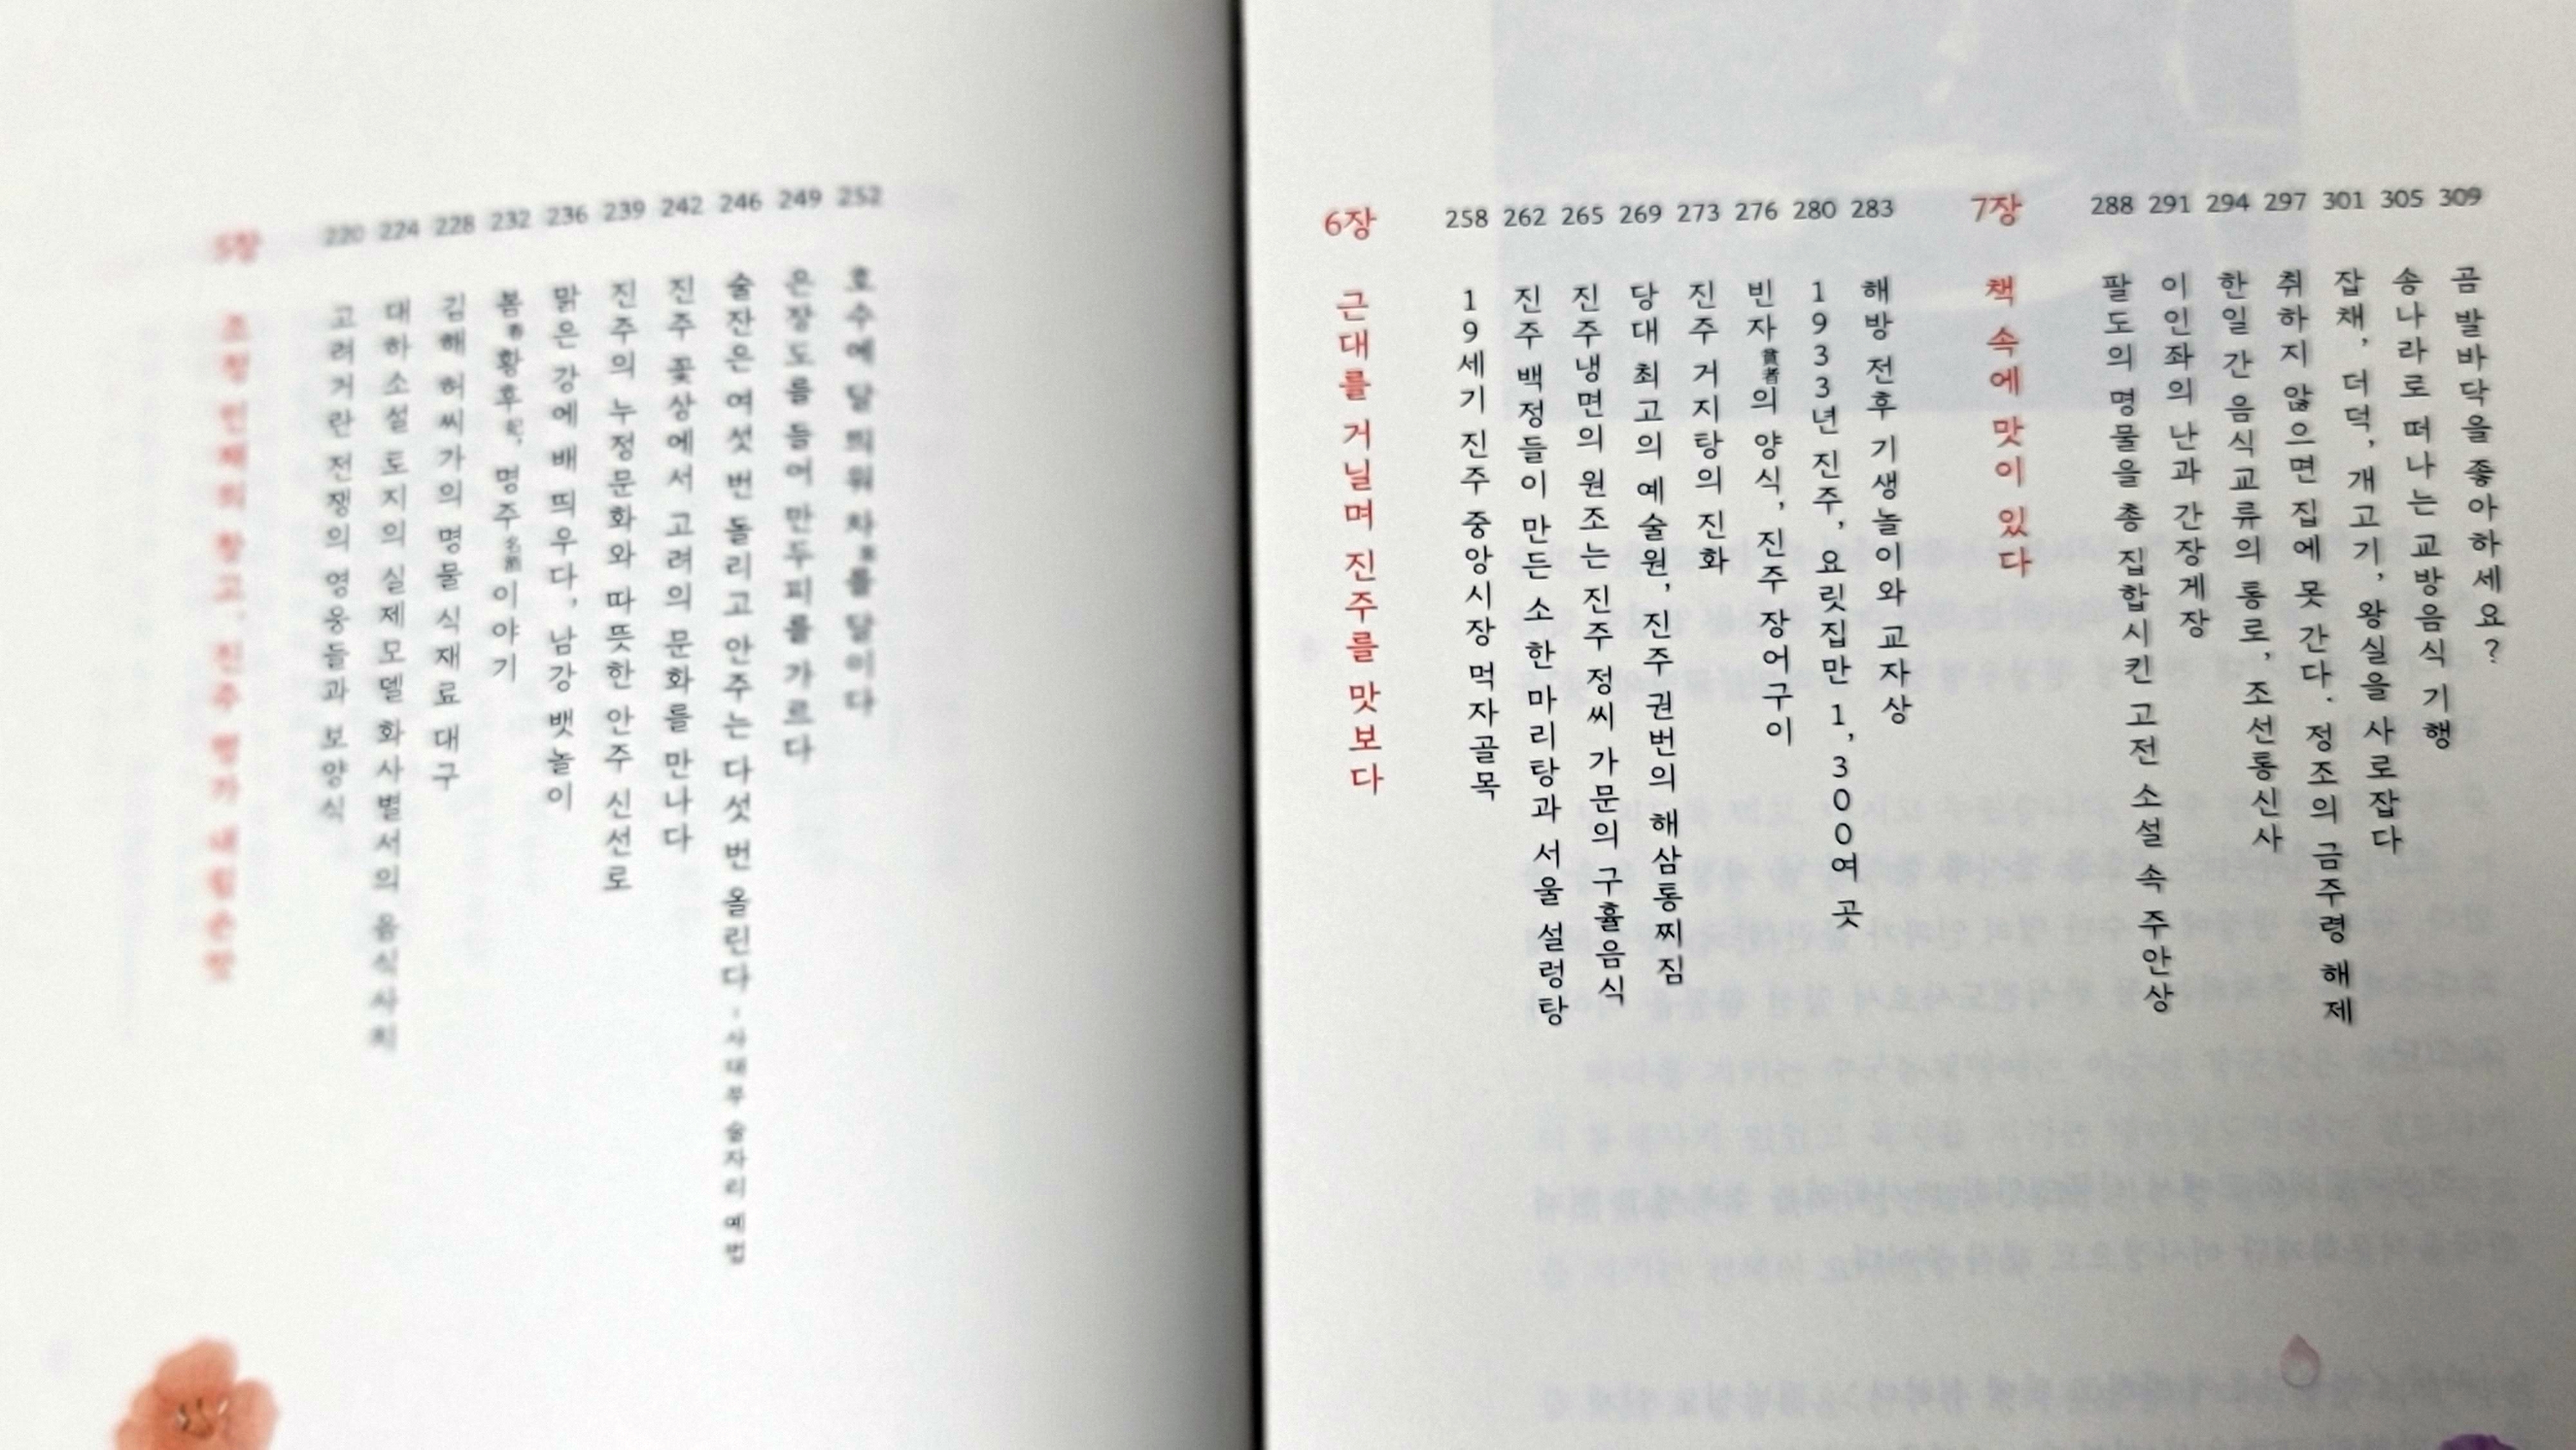 5장 조정 인재의 창고, 진주
220 고려거란전쟁의 영웅들과 보양식
224 대하소설 토지의 실제모델 화사별서의 음식사치
228 김해 허씨가의 명물 식재료 대구
232 봄春황후后, 명주名酒이야기
236 맑은 강에 배 띄우다, 남강 뱃놀이
239 진주의 누정문화와 따뜻한 안주 신선로
242 진주 꽃상에서 고려의 문화를 만나다
246 술잔은 여섯 번 돌리고 안주는 다섯 번 올린다 - 사대부 술자리 예법
249 은장도를 들어 만두피를 가르다
252 호수에 달 띄워 차茶를 달이다
6장 근대를 거닐며 진주를 맛보다
258 19세기 진주 중앙시장 먹자골목
262 진주 백정들이 만든 소 한 마리탕과 서울 설렁탕
265 진주냉면의 원조는 진주 정씨 가문의 구휼음식
269 당대 최고의 예술원, 진주 권번의 해삼통찌짐
273 진주 거지탕의 진화
276 빈자貧者의 양식, 진주 장어구이
280 1933년 진주, 요릿집만 1,300여 곳
283 해방 전후 기생놀이와 교자상
7장 책 속에 맛이 있다
288 팔도의 명물을 총 집합시킨 고전 소설 속 주안상
291 이인좌의 난과 간장게장
294 한일 간 음식교류의 통로, 조선통신사
297 취하지 않으면 집에 못 간다. 정조의 금주령 해제
301 잡채, 더덕, 개고기, 왕실을 사로잡다
305 송나라로 떠나는 교방음식 기행
309 곰 발바닥을 좋아하세요?